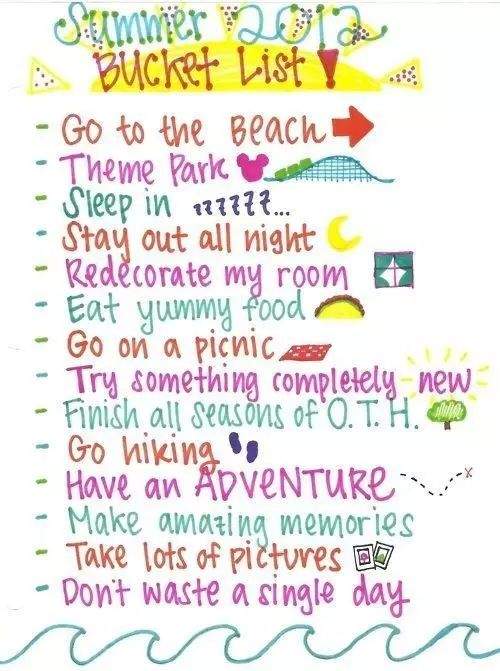 Summer 2012
Bucket List!
- Go to the Beach
- Theme Park
- Sleep in zzzzzz...
- Stay out all night
- Redecorate my room
- Eat yummy food
- Go on a picnic
- Try something completely new
- Finish all seasons of O.T.H.
- Go hiking
- Have an ADVENTURE
- Make amazing memories
- Take lots of pictures
- Don't waste a single day